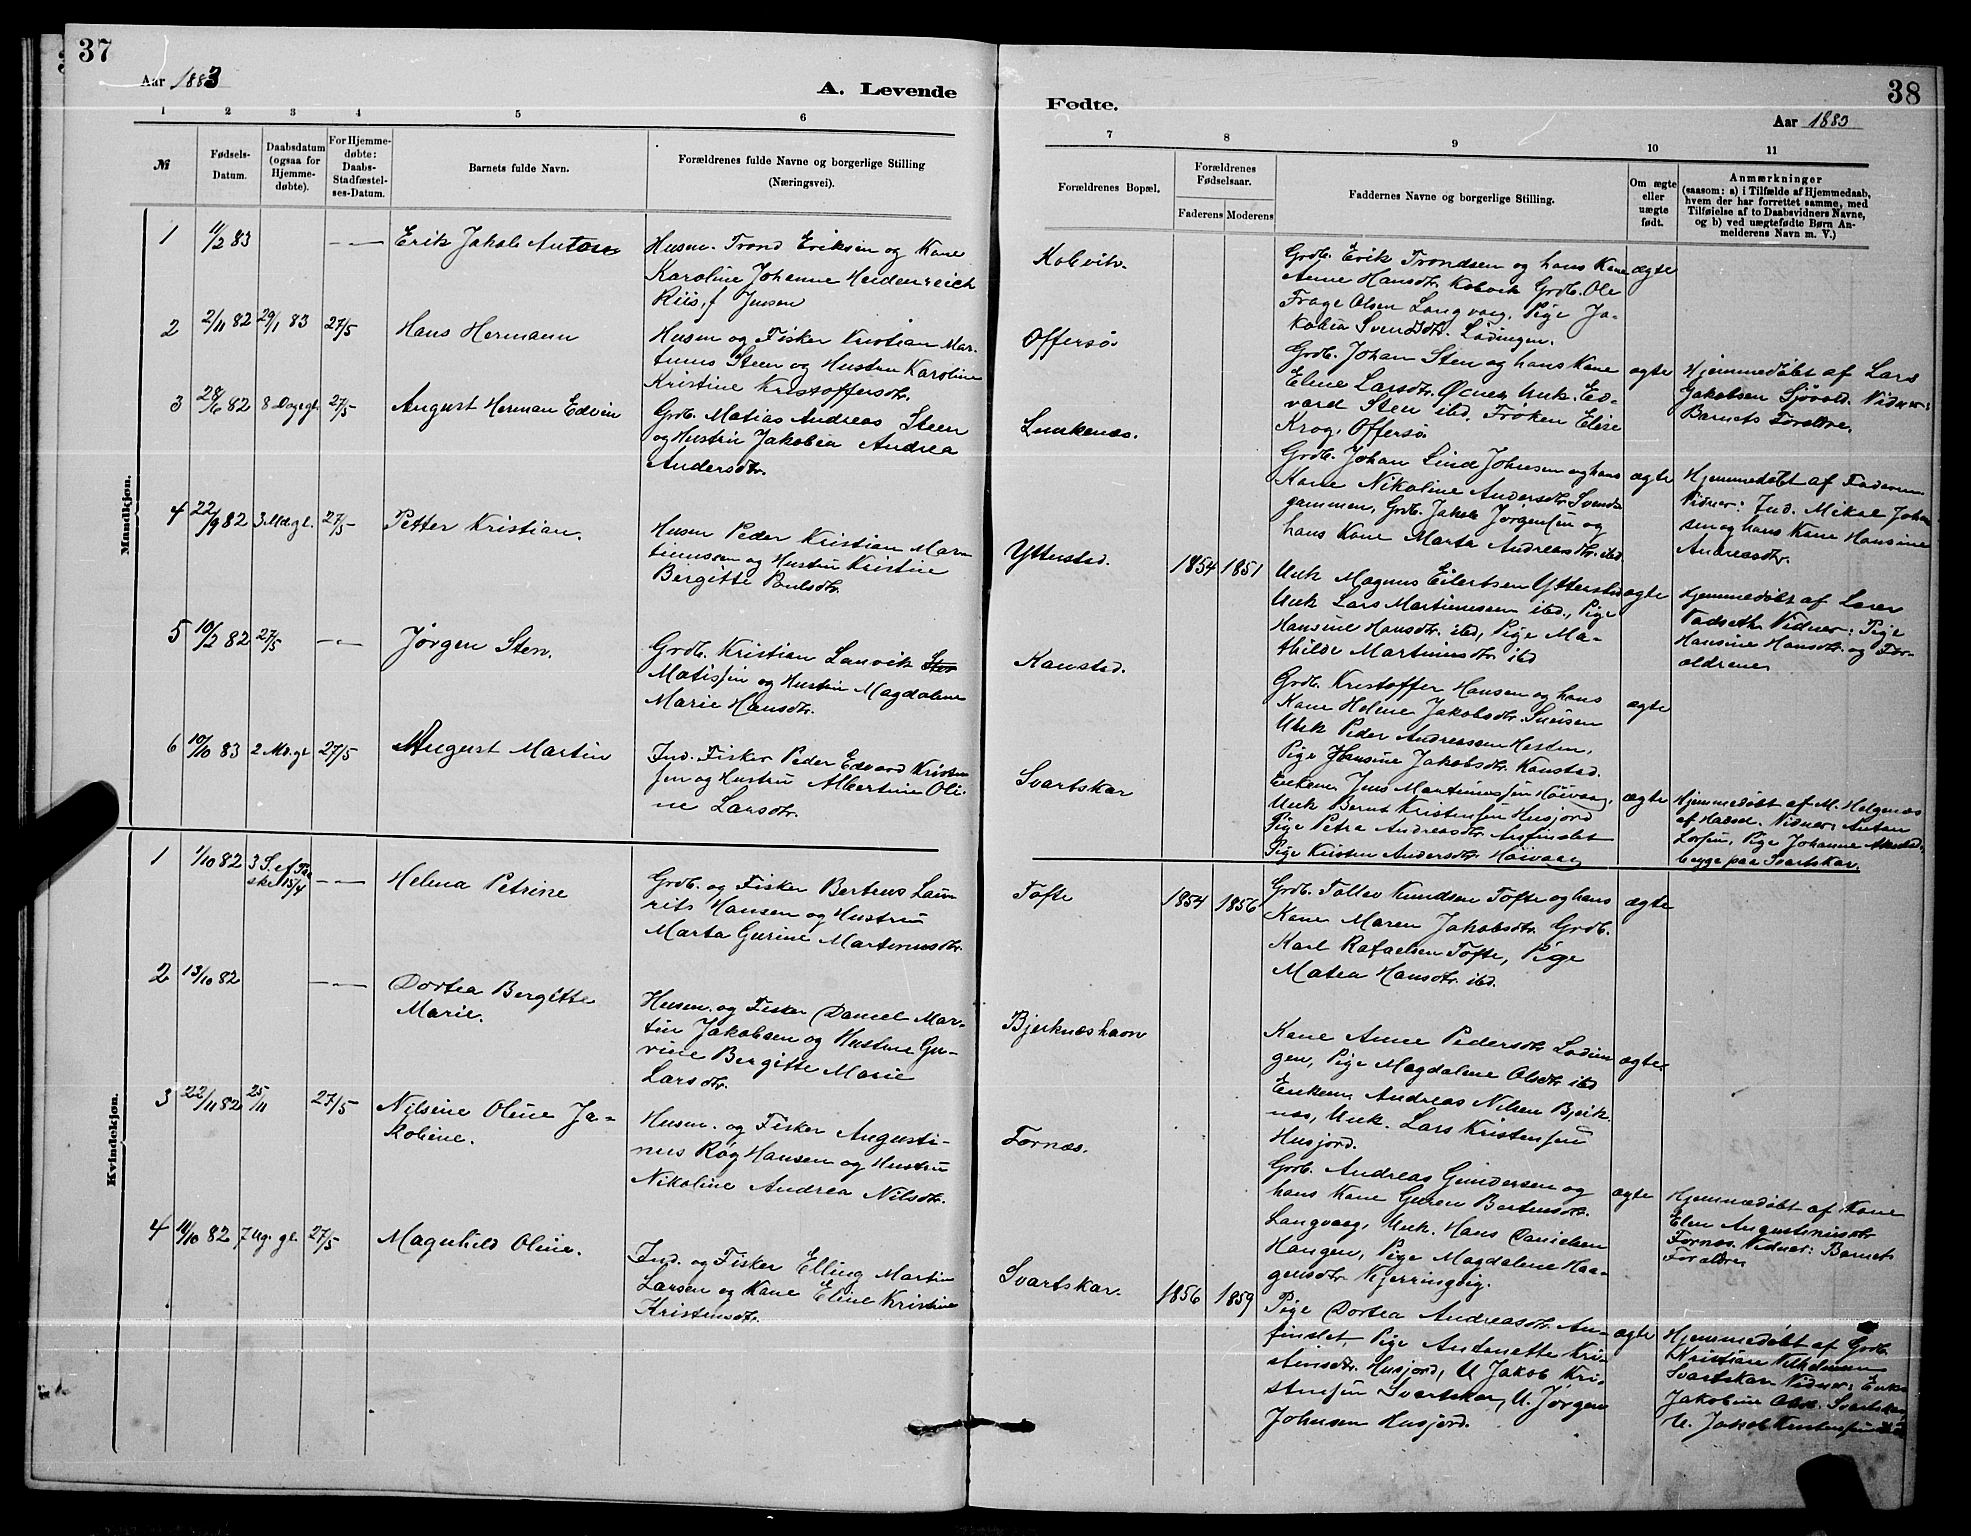 37
Aar 1883
A. Levende
1 2 3 4 5 6
№
Fødsels-
Datum.
Daabsdatum
(ogsaa for
Hjemme-
døbte).
For Hjemme-
døbte:
Daabs-
Stadfæstel-
ses-Datum.
Barnets fulde Navn.
Forældrenes fulde Navne og borgerlige Stilling
(Næringsvei).
Mandkjøn.
1 11/2 83 —„— Erik Jakob Anton
Husm. Trond Eriksen og Kone
Karoline Johanne Heidenreich
Riis, f Jensen
2 2/11 82 29/1 83 27/5 Hans Hermann
Husm og Fisker Kristian Mar-
tinus Steen og Hustru Karoline
Kristine Kristoffersdtr.
3 28/6 82 8 Dage gl. 27/5 August Herman Edvin
Grdb. Matias Andreas Steen
og Hustru Jakobia Andrea
Andersdtr.
4 22/9 82 3 Md. gl. 27/5 Petter Kristian.
Husm Peder Kristian Mar-
tinussen og Hustru Kristine
Bergitte Paulsdtr.
5 10/2 82 27/5 —„— Jørgen Sten.
Grdb. Kristian Lanvik
Matissen og Hustru Magdalene
Marie Hansdtr.
6 10/10 83 2 Md. gl 27/5 August Martin
Ind. Fisker Peder Edvard Kristen
sen og Hustru Albertine Oli-
ne Larsdtr.
Kvindekjøn.
1 1/10 82 3 S. ef. Paa
ske 15/4 —„— Helena Petrine
Grdb. og Fisker Bertens Lau-
rits Hansen og Hustru
Marta Gurine Martinusdtr.
2 13/10 82 —„— Dortea Bergitte
Marie.
Husm. og Fisker Daniel Mar-
tin Jakobsen og Hustru Gu-
rine Bergitte Marie
Larsdtr.
3 22/11 82 25/11 27/5 Nilsine Oline Ja-
kobine.
Husm. og Fisker Augusti-
nus Røg Hansen og Hustru
Nikoline Andrea Nilsdtr.
4 14/10 82 7 Ug. gl. 27/5 Magnhild Oline.
Ind. og Fisker Elling Martin
Larsen og Kone Eline Kristine
Kristensdtr.
38
Fødte.
Aar 1883
7 8 9 10 11
Forældrenes Bopæl.
Forældrenes
Fødselsaar.
Faderens Moderens
Faddernes Navne og borgerlige Stilling.
Om ægte
eller
uægte
født.
Anmærkninger
(saasom: a) i Tilfælde af Hjemmedaab,
hvem der har forrettet samme, med
Tilføielse af to Daabsvidners Navne,
og b) ved uægtefødte Børn An-
melderens Navn m. V.)
Kobvik.
Grdb. Erik Trondsen og hans Kone ægte
Anne Hansdtr. Kobvik Grdb. Ole
Frage Olsen Langvaag, Pige Ja-
kobia Svendsdtr. Lødingen.
Offersø
Grdb. Johan Sten og hans Kone ægte
Eline Larsdtr. Unk. Ed-
vard Sten ibd. Frøken Elise
Krog, Offersø
Hjemmedøbt af Lars
Jakobsen Vidner:
Barnets Forældre.
Lenkenæs.
Grdb. Johan Lind Johnsen og hans ægte
Kone Nikoline Andersdtr. Svends
gammen, Grdb. Jakob Jørgensen og
hans Kone Marta Andreasdtr. ibd
Hjemmedøbt af Faderen
Vidner: Ind. Mikal Johan
sen og hans Kone Hansine
Andreasdtr.
Ytterstad. 1854 1851
Unk Magnus Eilertsen Ytterstad ægte
Unk Lars Martinussen ibd, Pige
Hansine Hansdtr. ibd, Pige Ma-
thilde Martinusdtr ibd
Hjemmedøbt af Lærer
Vadseth. Vidner: Pige
Hansine Hansdtr. og For-
ældrene
Kanstad.
Grdb. Kristoffer Hansen og hans
Kone Helene Jakobsdtr. ægte
Unk Peder Andreassen Hesten,
Pige Hansine Jakobsdtr. Kanstad.
Svartskar
Enkem. Jens Martinussen Höivaag, ægte
Unk Bernt Kristensen Husjord
Pige Petra Andreasdtr. Anfinslet
Pige Kristen Andersdtr. Höivaag
Hjemmedøbt af M. Helgenæs
af Hadsel. Vidner: Antan
Larsen, Pige Johanne
begge paa Svartskar.
Tofte 1854 1856
Grdb. Tollev Knudsen Tofte og hans ægte
Kone Maren Jakobsdtr. Grdb.
Karl Rafaelsen Tofte, Pige
Matea Hansdtr. ibd.
Bjerknæshavn
Kone Anne Pedersdtr Lødin- ægte
gen, Pige Magdalene Olsdtr. ibd
Enkem. Andreas Nilsen Bjerk-
næs, Unk. Lars Kristensen
Husjord.
Fornæs.
Grdb. Andreas Gundersen og ægte
hans Kone Guren Bertensdtr.
Langvaag, Unk. Hans Danielsen
Haugen, Pige Magdalene Haa-
gensdtr. Kjerringvig.
Hjemmedøbt af Kone
Elen Augustinusdtr
Fornæs. Vidner: Barnets
Forældre
Svartskar. 1856 1859
Pige Dortea Andreasdtr. An- ægte
finslet, Pige Andonette Kri-
stensdtr. Husjord, U Jakob Kri-
stensen Svartskar, U. Jørgen
Johnsen Husjord.
Hjemmedøbt af Grdb.
Kristian Vilhelmsen
Svartskar Vidner: Enke
Jakobine Olsdtr. Svartskar
U. Jakob Kristensen ibd